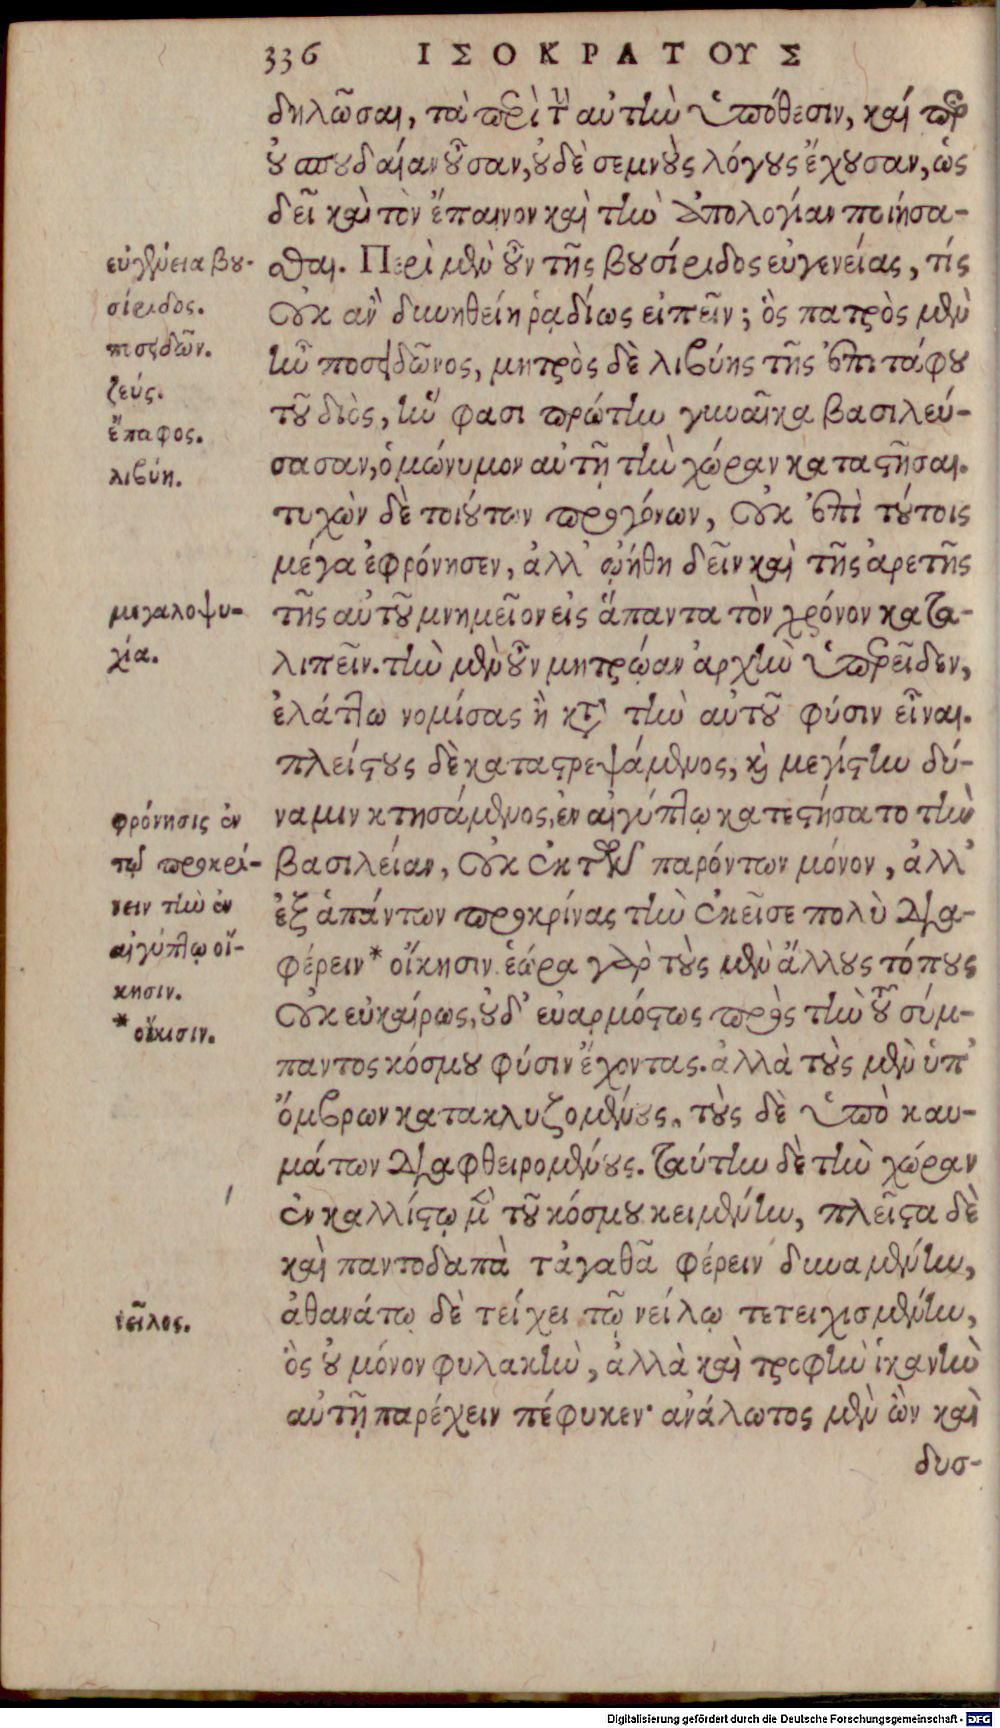 336 ΙΣΟΚΡΑΤΟΥΣ
δηλῶσαι, τὰ περὶ τὴν αὐτὴν ὑπόθεσιν, καίπερ
οὐ σπουδαίαν οὖσαν, οὐδὲ σεμνοὺς λόγους ἔχουσαν, ὡς
δεῖ καὶ τὸν ἔπαινον καὶ τὴν ἀπολογίαν ποιήσα-
σθαι. Περὶ μὲν οὖν τῆς βουσίριδος εὐγενείας, τίς
οὐκ ἂν δυνηθείη ῥαδίως εἰπεῖν; ὃς πατρὸς μὲν
ἦν ποσειδῶνος, μητρὸς δὲ λιβύης τῆς ἐπιτάφου
τοῦ διὸς, ἥν φασι πρώτην γυναῖκα βασιλεύ-
σασαν, ὁμώνυμον αὐτῇ τὴν χώραν καταστῆσαι.
τυχὼν δὲ τοιούτων προγόνων, οὐκ ἐπὶ τούτοις
μέγα ἐφρόνησεν, ἀλλ' ᾠήθη δεῖν καὶ τῆς ἀρετῆς
τῆς αὑτοῦ μνημεῖον εἰς ἅπαντα τὸν χρόνον κατα-
λιπεῖν. τὴν μὲν οὖν μητρῴαν ἀρχὴν ὑπερεῖδεν,
ἐλάττω νομίσας ἢ κατὰ τὴν αὑτοῦ φύσιν εἶναι.
πλείστους δὲ καταστρεψάμενος, καὶ μεγίστην δύ-
ναμιν κτησάμενος, ἐν αἰγύπτῳ κατεστήσατο τὴν
βασιλείαν, οὐκ ἐκ τῶν παρόντων μόνον, ἀλλ'
ἐξ ἁπάντων προκρίνας τὴν ἐκεῖσε πολὺ δια-
φέρειν * οἴκησιν. ἑώρα γὰρ τοὺς μὲν ἄλλους τόπους
οὐκ εὐκαίρως, οὐδ' εὐαρμόστως πρὸς τὴν τοῦ σύμ-
παντος κόσμου φύσιν ἔχοντας. ἀλλὰ τοὺς μὲν ὑπ'
ὄμβρων κατακλυζομένους, τοὺς δὲ ὑπὸ καυ-
μάτων διαφθειρομένους. ταύτην δὲ τὴν χώραν
ἐν καλλίστῳ μὲν τοῦ κόσμου κειμένην, πλεῖστα δὲ
καὶ παντοδαπὰ τἀγαθὰ φέρειν δυναμένην,
ἀθανάτῳ δὲ τείχει τῷ νείλῳ τετειχισμένην,
ὃς οὐ μόνον φυλακὴν, ἀλλὰ καὶ τροφὴν ἱκανὴν
αὐτῇ παρέχειν πέφυκεν· ἀνάλωτος μὲν ὢν καὶ
δυσ-
εὐγένεια βου-
σίριδος.
ποσειδῶν.
ζεύς.
ἔπαφος.
λιβύη.
μεγαλοψυ-
χία.
φρόνησις ἐν
τῷ προκρί-
νειν τὴν ἐν
αἰγύπτῳ οἴ-
κησιν.
* οἴκισιν.
νεῖλος.
Digitalisierung gefördert durch die Deutsche Forschungsgemeinschaft - DFG